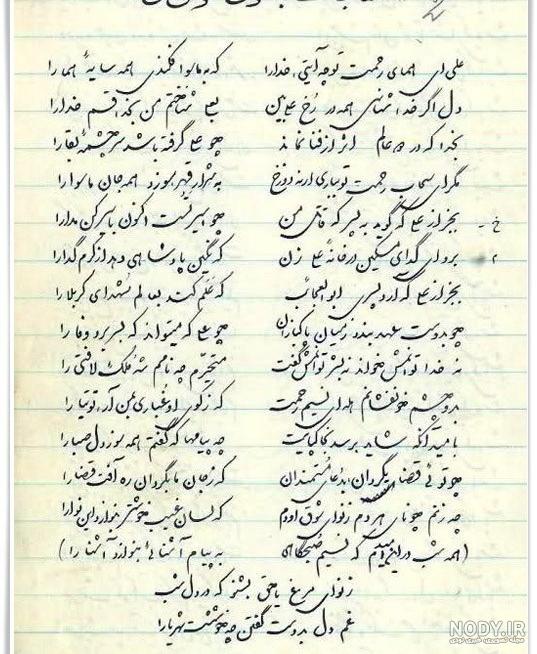 علی ای همای رحمت تو چه آیتی خدا را که به ماسوا فکندی همه سایهٔ هما را
دل اگر خداشناسی همه در رخ علی بین به علی شناختم من بخدا قسم خدا را
بخدا که در دو عالم اثر از فنا نماند چو علی گرفته باشد سر چشمهٔ بقا را
مگر ای سحاب رحمت تو بباری ارنه دوزخ به شرار قهر سوزد همه جان ماسوا را
بجز از علی که گوید به پسر که قاتل من چو اسیر تست اکنون به اسیر کن مدارا
برو ای گدای مسکین در خانهٔ علی زن که نگین پادشاهی دهد از کرم گدا را
بجز از علی که آرد پسری ابوالعجائب که علم کند به عالم شهدای کربلا را
چو بدوست عهد بندد ز میان پاکبازان چو علی که میتواند که بسر برد وفا را
نه خدا توانمش خواند نه بشر توانمش گفت متحیرم چه نامم شه ملک لافتی را
بدو چشم خونفشانم هله ای نسیم رحمت که ز کوی او غباری بمن آر توتیا را
بامید آنکه شاید برسد بخاک پایت چه پیامها که گفتم همه سوز دل صبا را
چو توئی قضا بگردان بدعای مستمندان که ز جان ما بگردان ره آفت قضا را
چه زنم چو نای هر دم ز نوای شوق او دم که لسان غیب خوشتر بنوازد این نوا را
(همه شب در این امیدم که نسیم صبحگاهی به پیام آشنائی بنوازد آشنا را)
ز نوای مرغ یا حق بشنو که در دل شب
غم دل بدوست گفتن چه خوشست شهریارا
NODY.IR